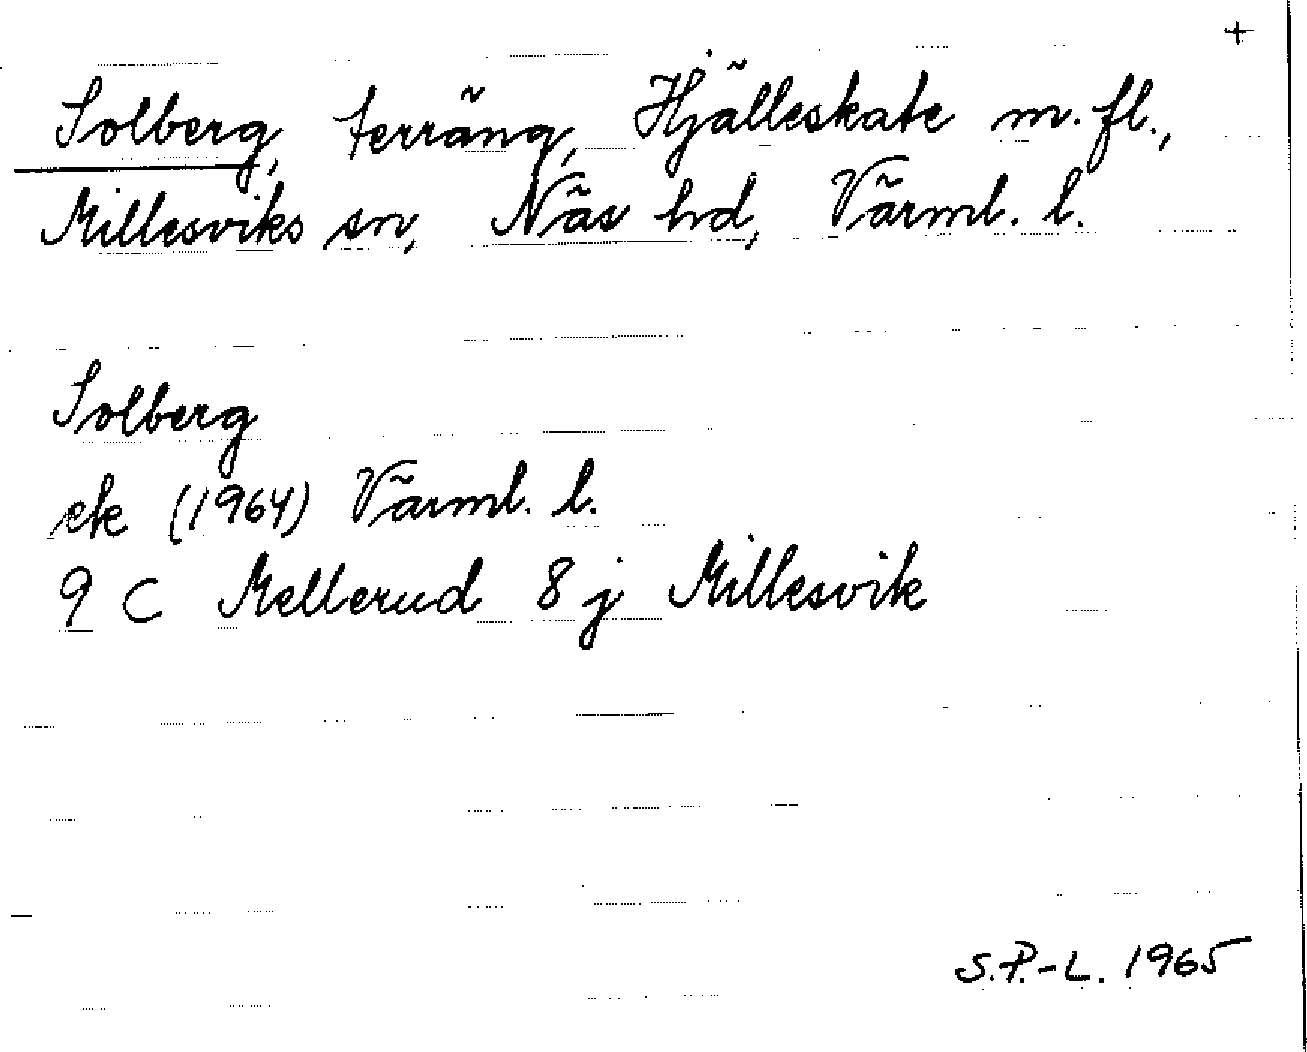 +
Solberg, terräng, Hjälleskate m. fl.,
Millesviks sn, Näs hd, Värml. l.
Solberg
ek (1964) Värml. l.
9 C Mellerud 8 j Millesvik
S.P.-L. 1965